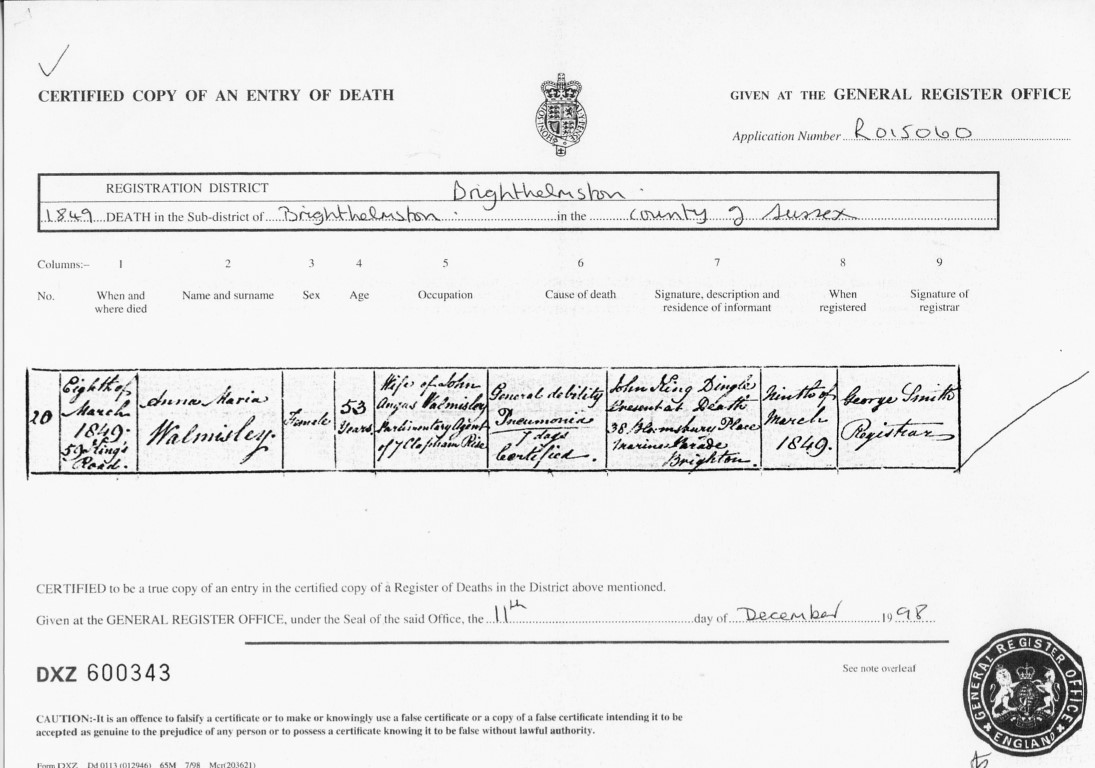 CERTIFIED COPY OF AN ENTRY OF DEATH
GIVEN AT THE GENERAL REGISTER OFFICE
Application Number R015060
REGISTRATION DISTRICT Brighthelmston
1849 DEATH in the Sub-district of Brighthelmston in the County of Sussex
Columns:- 1 2 3 4 5 6 7 8 9
No. When and where died Name and surname Sex Age Occupation Cause of death Signature, description and residence of informant When registered Signature of registrar
20
Eighth of
March
1849.
at
59 King's
Road.
Anna Maria
Walmisley.
Female
53
Years
Wife of John
Angus Walmisley
Parliamentary Agent
of 7 Clapham Rise
General debility
Pneumonia
7 days
Certified.
John King Dingle
Present at Death
38 Bloomsbury Place
Marine Parade
Brighton.
Ninth of
March
1849.
George Smith
Registrar
CERTIFIED to be a true copy of an entry in the certified copy of a Register of Deaths in the District above mentioned.
Given at the GENERAL REGISTER OFFICE, under the Seal of the said Office, the 11th day of December 1998
DXZ 600343
See note overleaf
CAUTION:-It is an offence to falsify a certificate or to make or knowingly use a false certificate or a copy of a false certificate intending it to be
accepted as genuine to the prejudice of any person or to possess a certificate knowing it to be false without lawful authority.
GENERAL REGISTER OFFICE
ENGLAND
Form DXZ Dd 0113 (012946) 65M 7/98 Mcr(203621)